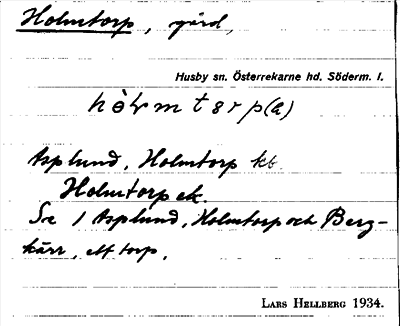 Holmtorp, gård,
Husby sn. Österrekarne hd. Söderm. l.
Asplund, Holmtorp kb.
Holmtorp ek.
Se / Asplund, Holmtorp och Berg-
kärr, ett torp.
LARS HELLBERG 1934.